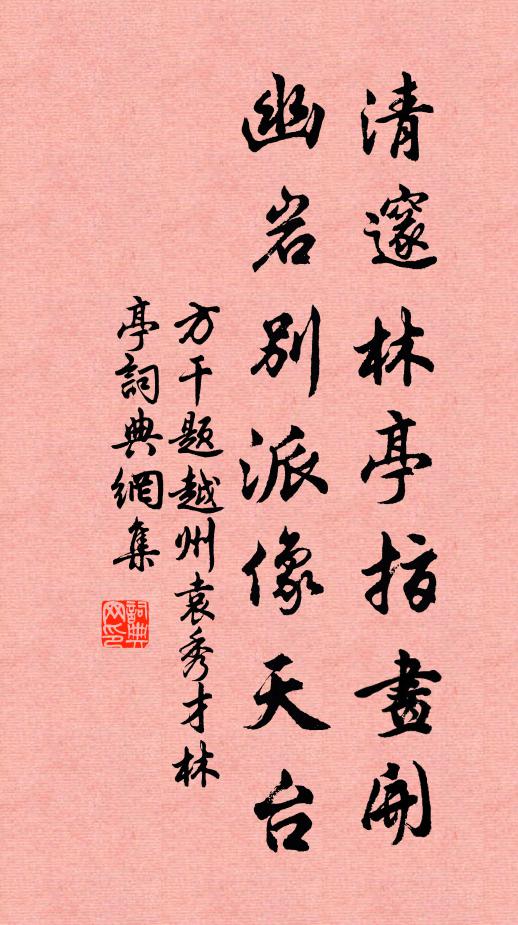 清邃林亭指畫開
幽岩别派像天台
方干题越州袁秀才林
亭詞典網集
詞典
网印